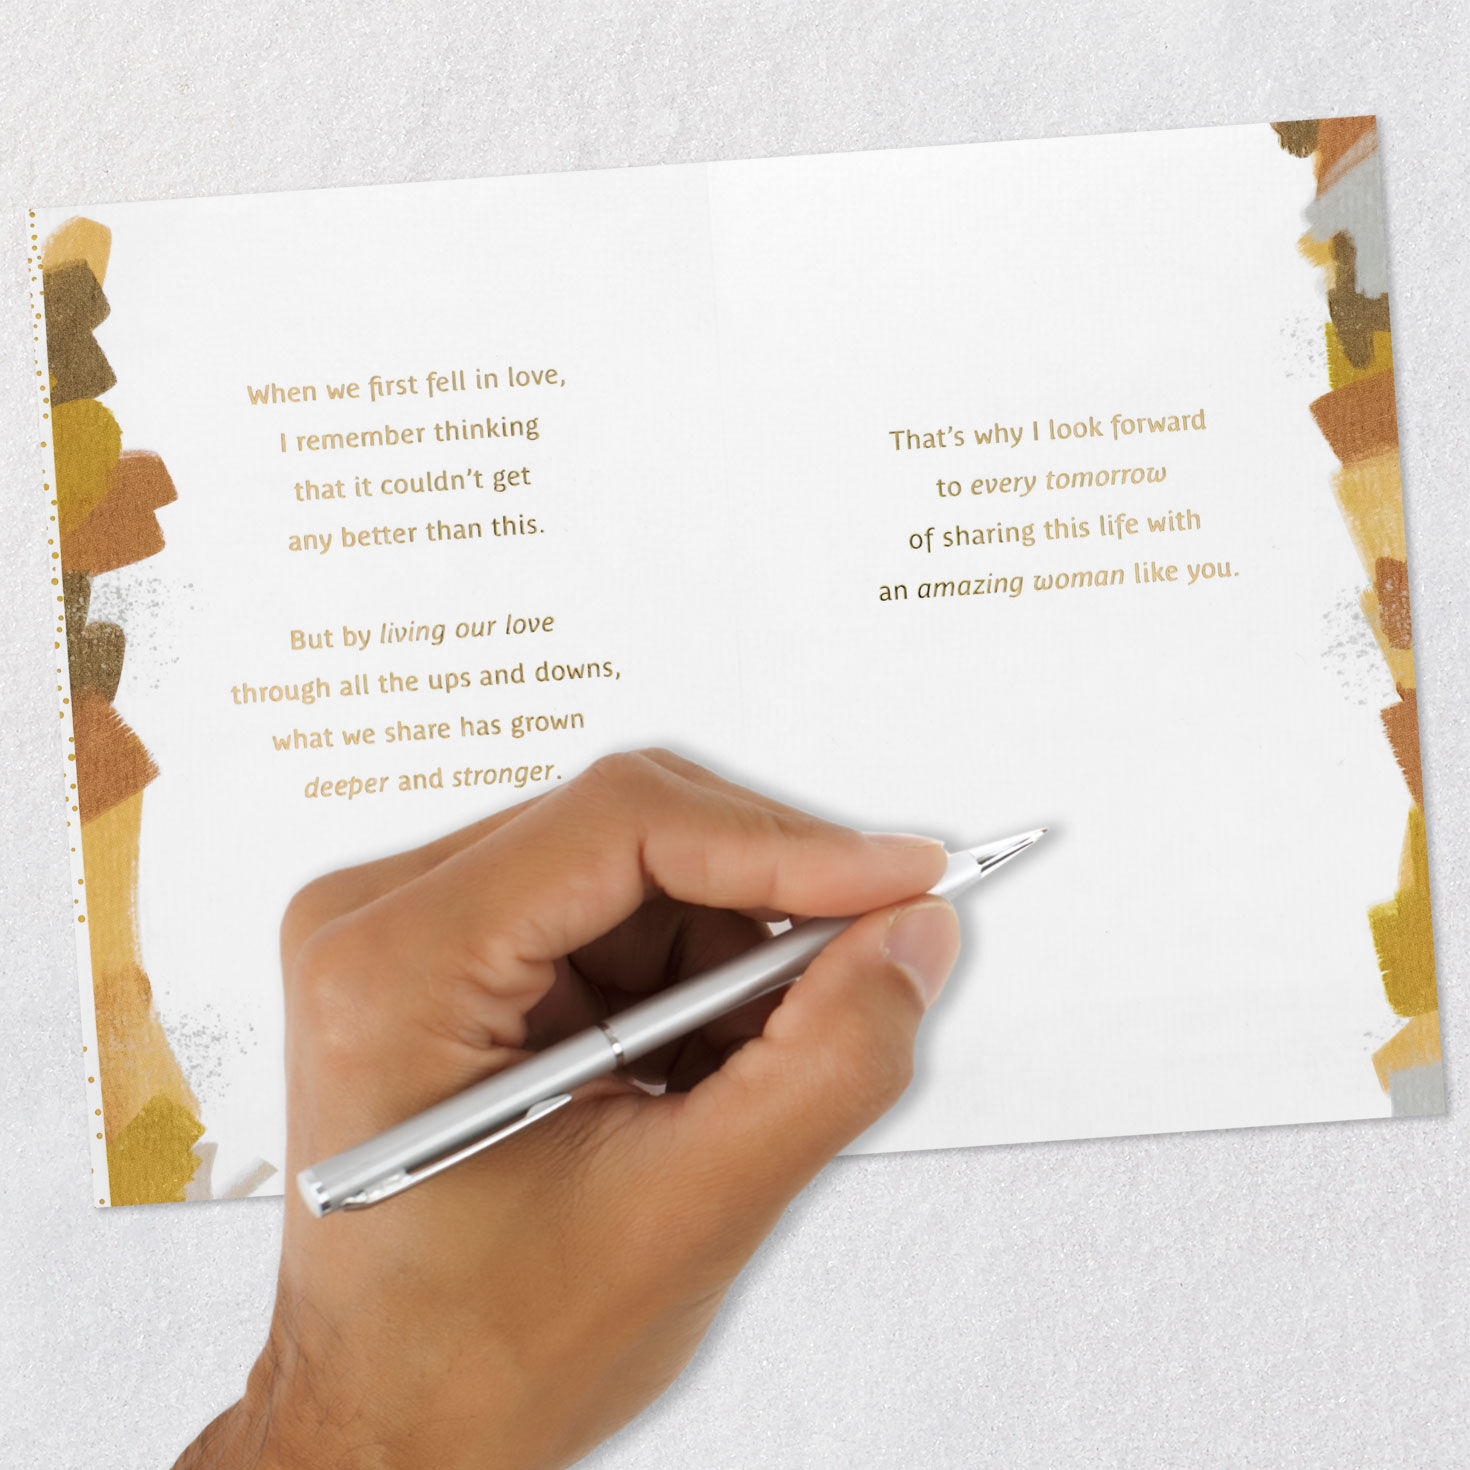 When we first fell in love,
I remember thinking
that it couldn't get
any better than this.
But by living our love
through all the ups and downs,
what we share has grown
deeper and stronger.
That's why I look forward
to every tomorrow
of sharing this life with
an amazing woman like you.